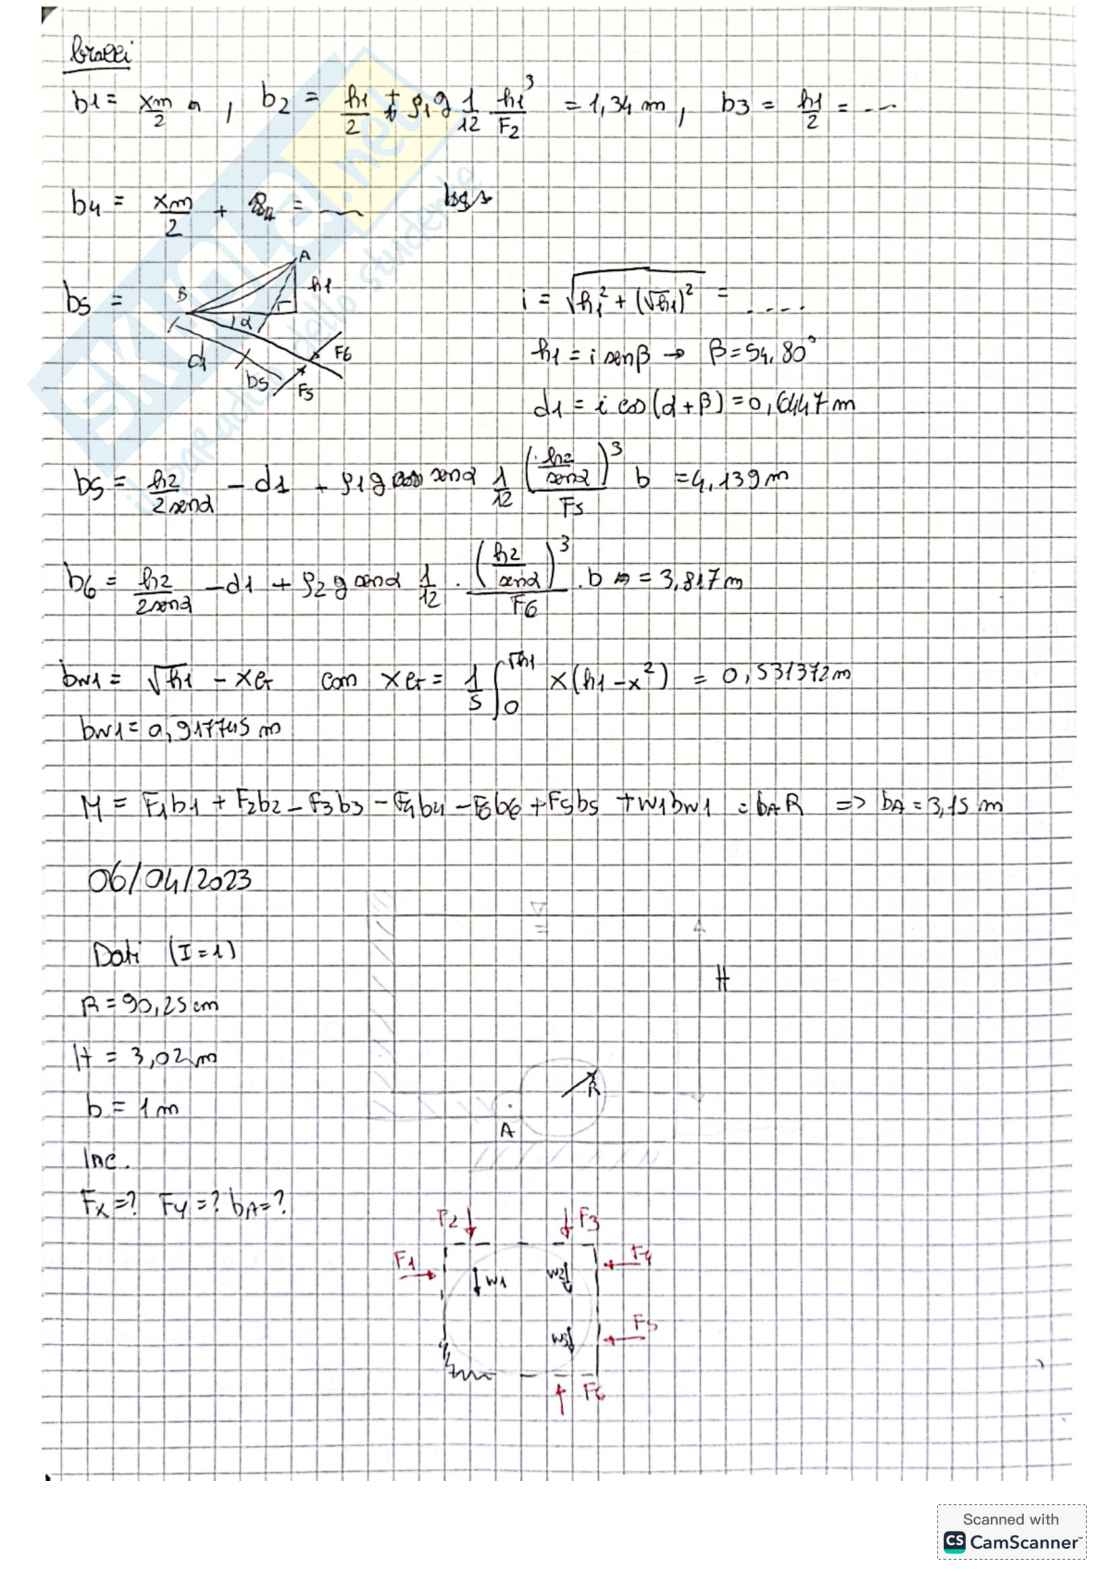 bracci
b1 = xm/2 , b2 = h1/2 + ρ1g 1/12 h1³/F2 = 1,34 m, b3 = h1/2 = ...
b4 = xm/2 + = 
b5 =
A
B
h1
α
d
b5
F6
F5
i = √(h1² + (√h1)²) = ....
h1 = i senβ → β = 54,80°
d1 = i cos(α+β) = 0,6447 m
b5 = h2/2senα - d1 + ρ1g senα 1/12 (h2/senα)³/F5 b = 4,139 m
b6 = h2/2senα - d1 + ρ2g senα 1/12 · (h2/senα)³/F6 · b = 3,817 m
bW1 = √h1 - xG con xG = 1/S ∫0^√h1 x(h1-x²) = 0,531372 m
bW1 = 0,917745 m
M = F1b1 + F2b2 - F3b3 - F4b4 - F6b6 + F5b5 + W1bW1 = bA R => bA = 3,15 m
06/04/2023
Dati (I=1)
R = 90,25 cm
H = 3,02 m
b = 1 m
Inc.
Fx=? Fy=? bA=?
H
R
A
F2
F3
F1
F4
W1
W2
F5
W3
F6
SKUOLA.net
il paradiso dello studente
Scanned with
CS CamScanner